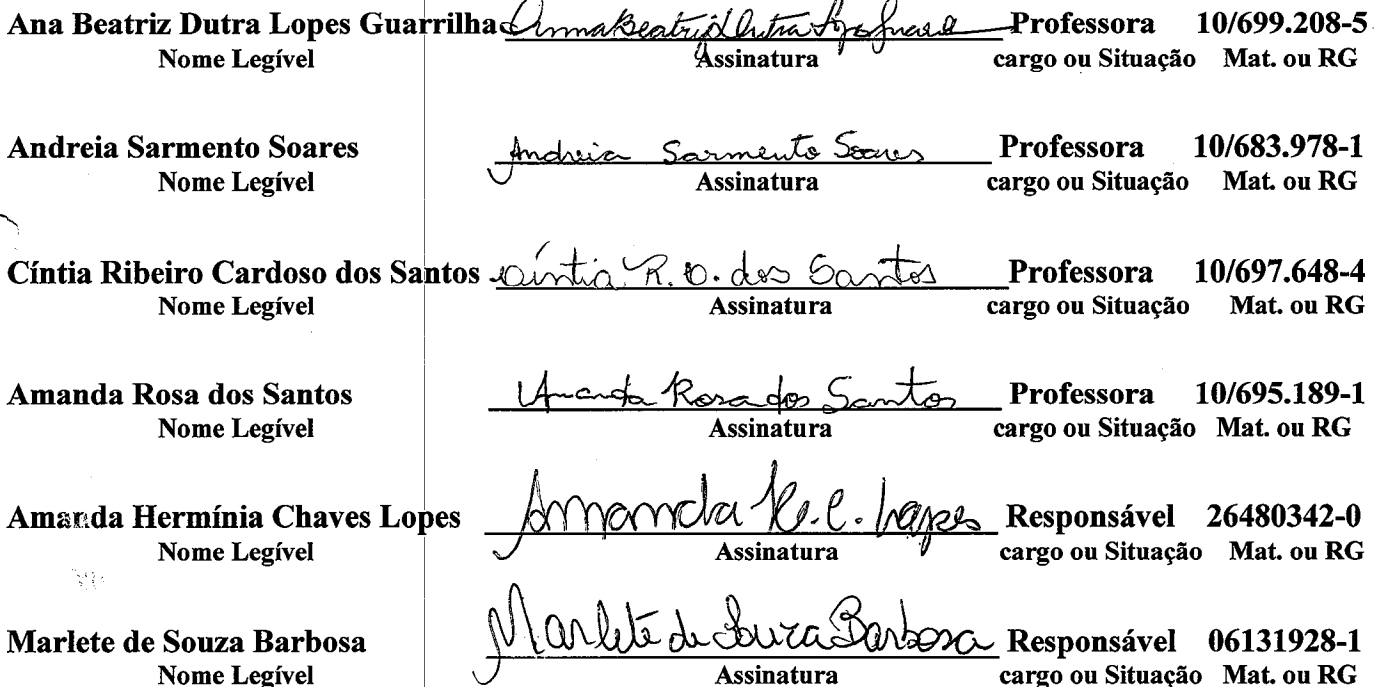 Ana Beatriz Dutra Lopes Guarrilha Anna Beatriz Dutra Professora 10/699.208-5
Nome Legível Assinatura cargo ou Situação Mat. ou RG
Andreia Sarmento Soares Andreia Sarmento Soares Professora 10/683.978-1
Nome Legível Assinatura cargo ou Situação Mat. ou RG
Cíntia Ribeiro Cardoso dos Santos Cíntia R. C. dos Santos Professora 10/697.648-4
Nome Legível Assinatura cargo ou Situação Mat. ou RG
Amanda Rosa dos Santos Amanda Rosa dos Santos Professora 10/695.189-1
Nome Legível Assinatura cargo ou Situação Mat. ou RG
Amanda Hermínia Chaves Lopes Amanda H. C. Lopes Responsável 26480342-0
Nome Legível Assinatura cargo ou Situação Mat. ou RG
Marlete de Souza Barbosa Marlete de Souza Barbosa Responsável 06131928-1
Nome Legível Assinatura cargo ou Situação Mat. ou RG